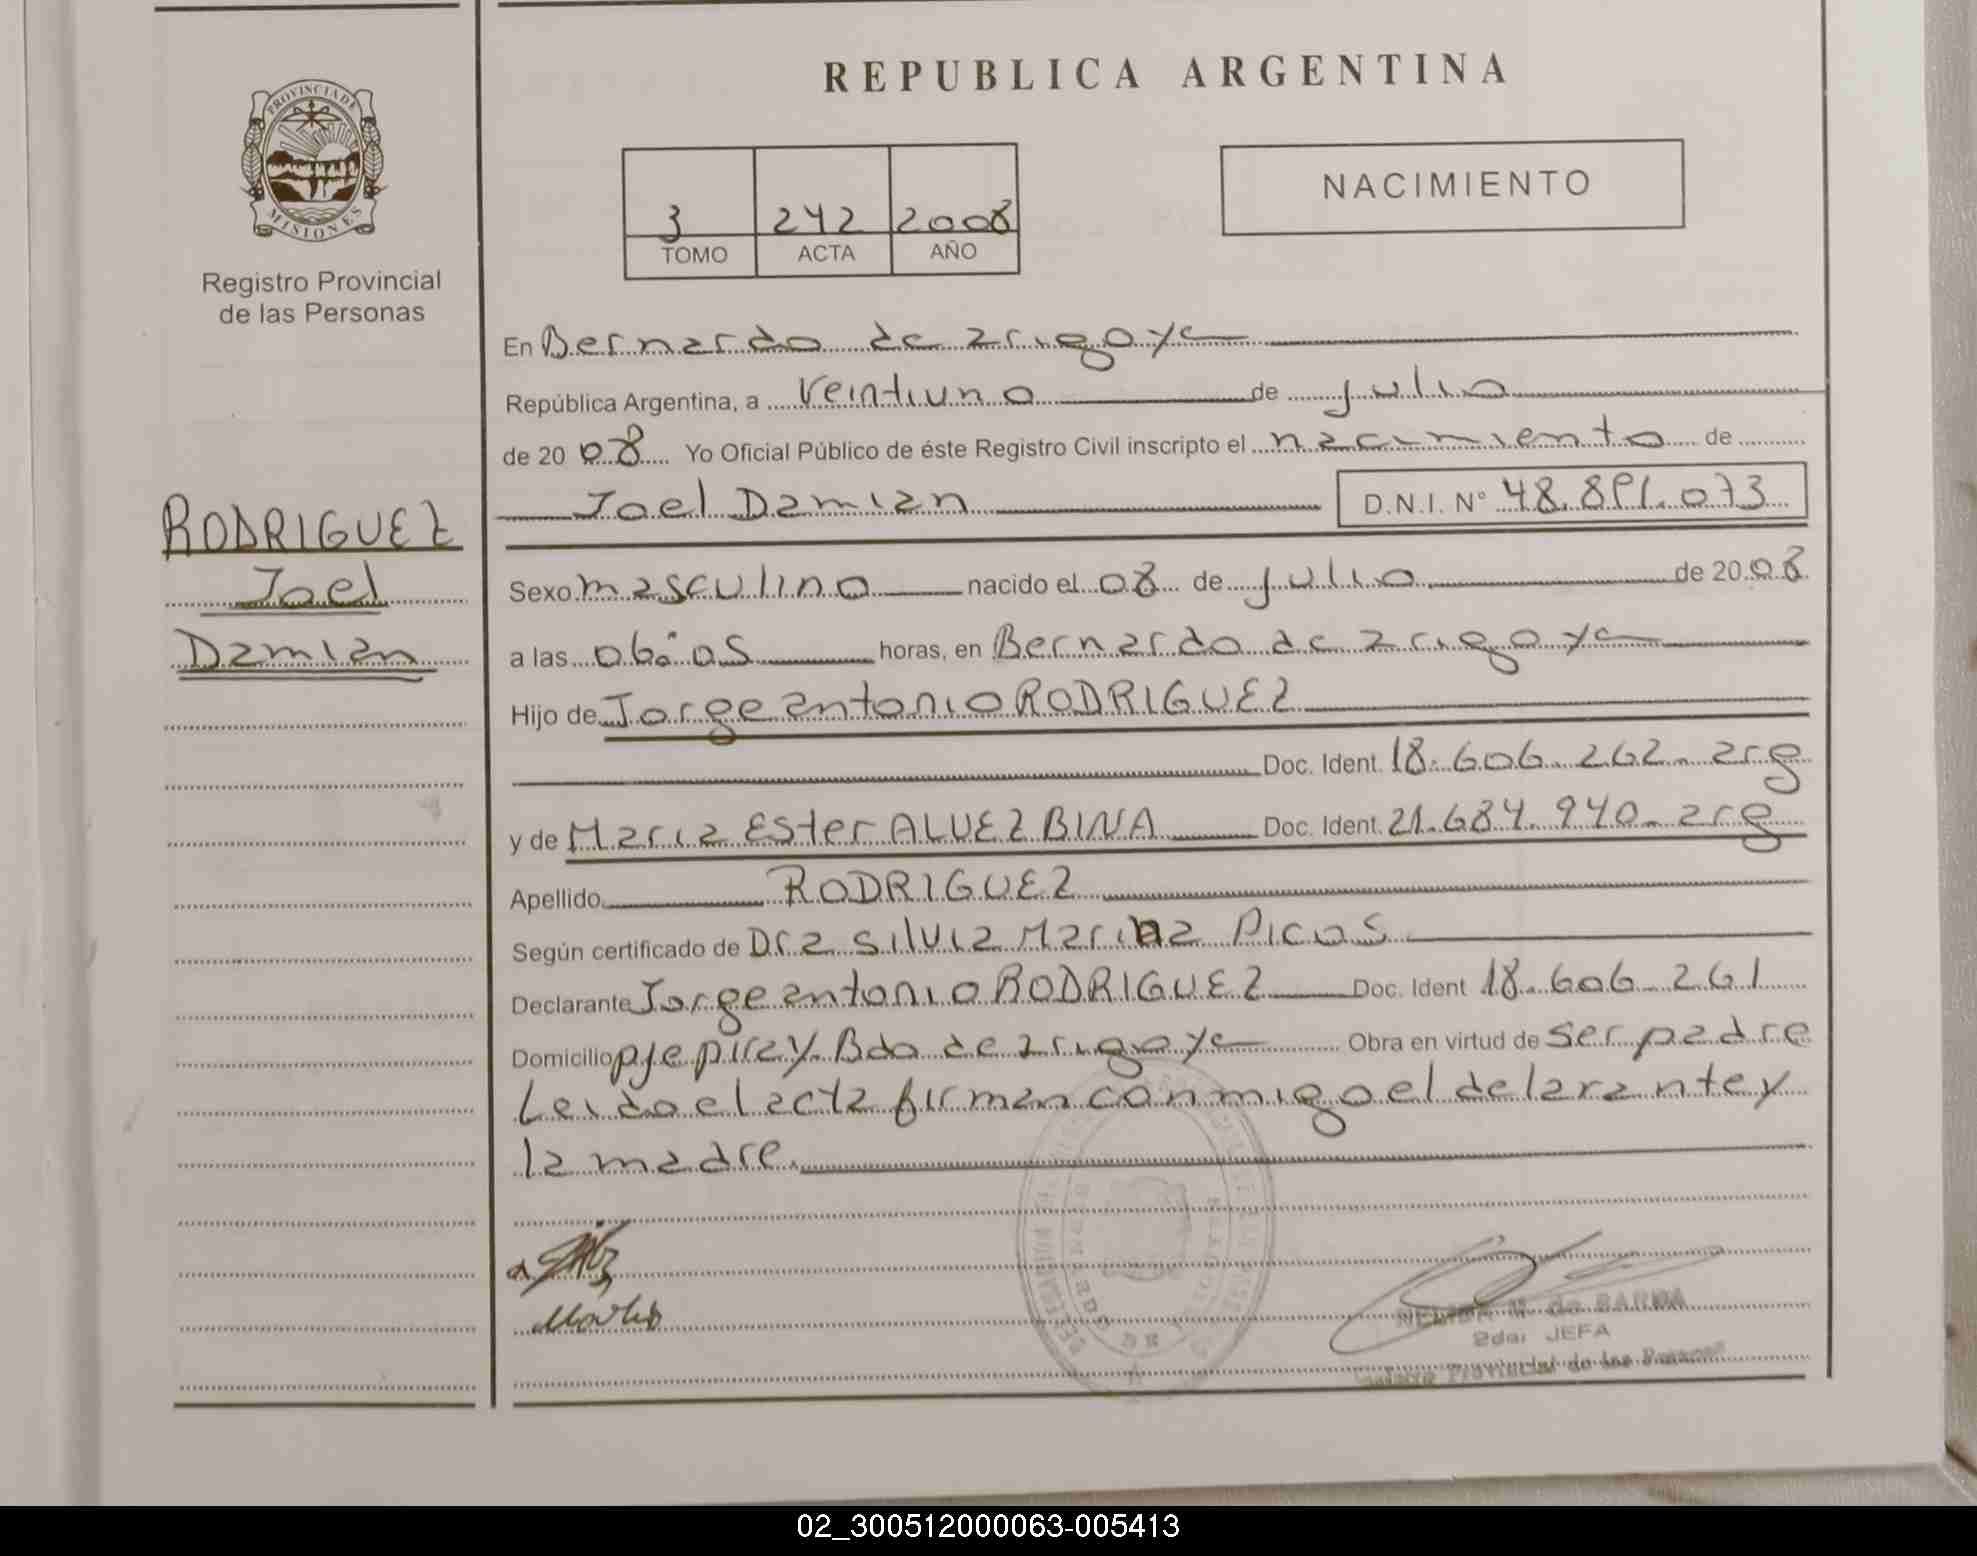 REPUBLICA ARGENTINA
PROVINCIA DE
MISIONES
Registro Provincial
de las Personas
3 242 2008
TOMO ACTA AÑO
NACIMIENTO
En Bernardo de Irigoye
República Argentina, a Veintiuno de julio
de 20 08 Yo Oficial Público de éste Registro Civil inscripto el nacimiento de
Joel Damian D.N.I. Nº 48.891.073
RODRIGUEZ
Joel
Damian
Sexo masculino nacido el 08 de julio de 20 08
a las 06:05 horas, en Bernardo de Irigoye
Hijo de Jorge antonio RODRIGUEZ
Doc. Ident. 18.606.262 - arg
y de Maria Ester ALVEZ BINA Doc. Ident. 21.684.940 - arg
Apellido RODRIGUEZ
Según certificado de Dra Silvia Marina Picos
Declarante Jorge antonio RODRIGUEZ Doc. Ident 18.606.261
Domicilio pje piray Bdo de Irigoye Obra en virtud de ser padre
Leido el acta firman conmigo el delarante y
la madre.
de BARNA
2da. JEFA
Provincial de las Personas
02_300512000063-005413